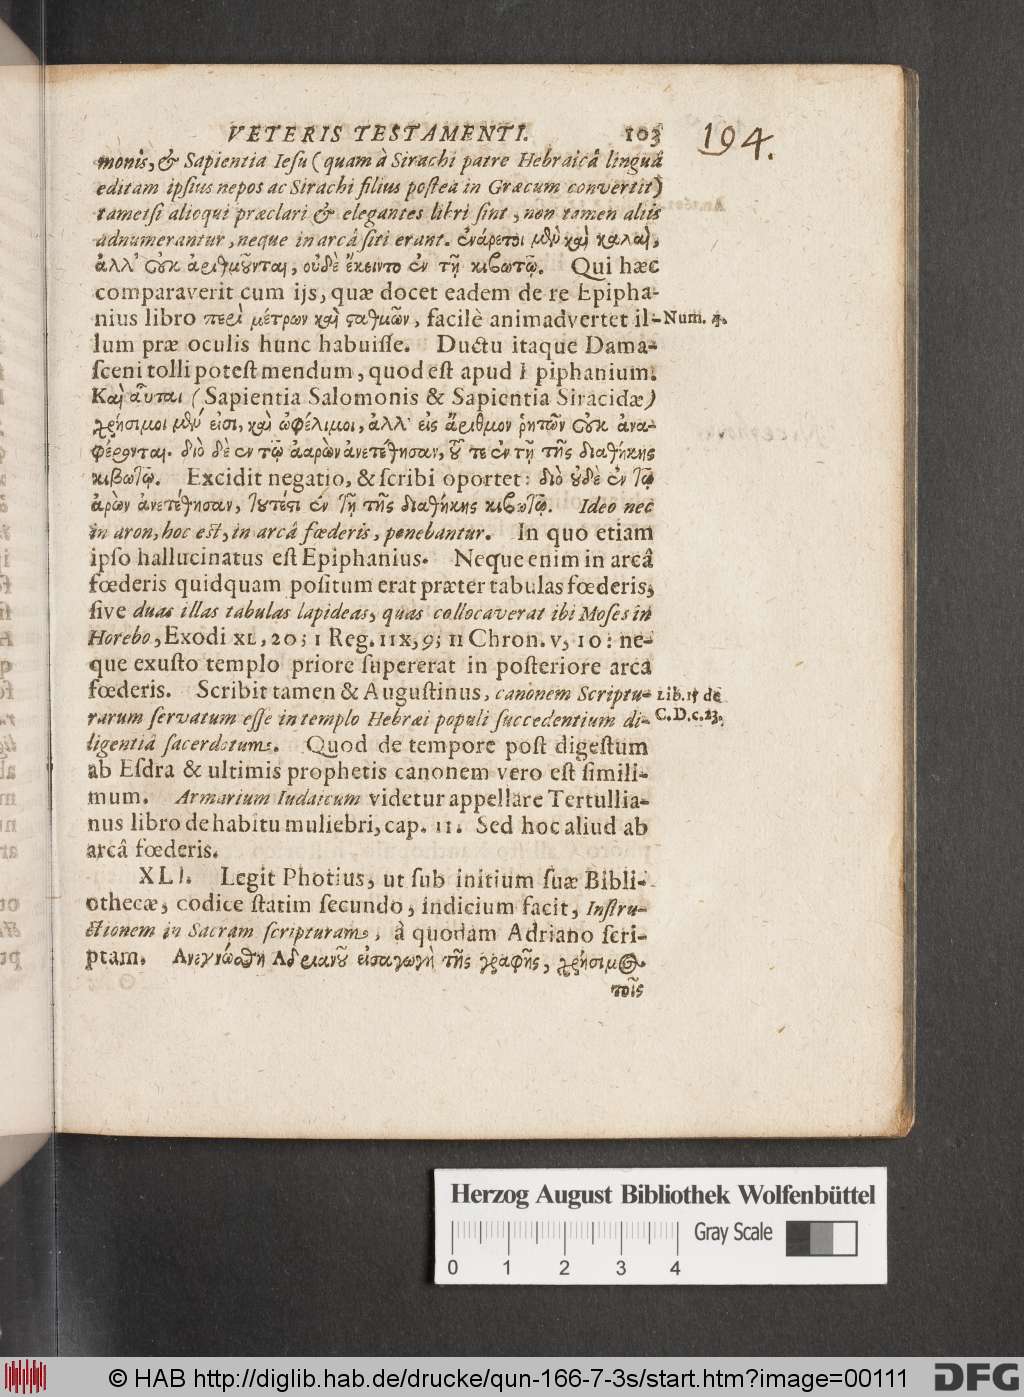 VETERIS TESTAMENTI. 103
194.
monis, & Sapientia Iesu (quam à Sirachi patre Hebraicâ linguâ
editam ipsius nepos ac Sirachi filius postea in Græcum convertit)
tametsi alioqui præclari & elegantes libri sint, non tamen aliis
adnumerantur, neque in arcâ siti erant. ἐνάρετοι μὲν καὶ καλαὶ,
ἀλλ' οὐκ ἀριθμοῦνται, οὐδὲ ἔκειντο ἐν τῇ κιβωτῷ. Qui hæc
comparaverit cum ijs, quæ docet eadem de re Epipha-
nius libro περὶ μέτρων καὶ ςαθμῶν, facilè animadvertet il-
Num. 4.
lum præ oculis hunc habuiſſe. Ductu itaque Dama-
ſceni tolli poteſt mendum, quod eſt apud Epiphanium.
Καὶ αὗται (Sapientia Salomonis & Sapientia Siracidæ)
χρήσιμοι μέν εἰσι, καὶ ὠφέλιμοι, ἀλλ' εἰς ἄριθμον ῥητῶν οὐκ ἀνα-
φέρονται. διὸ δὲ ἐν τῷ ἀαρὼν ἀνετέθησαν, οὗ τε ἐν τῇ τῆς διαθήκης
κιβωτῷ. Excidit negatio, & ſcribi oportet: διὸ οὐδὲ ἐν τῷ
ἀρὼν ἀνετέθησαν, τουτέςι ἐν τῇ τῆς διαθήκης κιβωτῷ. Ideo nec
in aron, hoc est, in arcâ fœderis, ponebantur. In quo etiam
ipſo hallucinatus eſt Epiphanius. Neque enim in arcâ
fœderis quidquam poſitum erat præter tabulas fœderis,
ſive duas illas tabulas lapideas, quas collocaverat ibi Moſes in
Horebo, Exodi XL, 20; I Reg. IIX, 9; II Chron. V, 10: ne-
que exuſto templo priore ſupererat in poſteriore arca
fœderis. Scribit tamen & Auguſtinus, canonem Scriptu-
Lib. 15 de
rarum ſervatum eſſe in templo Hebræi populi ſuccedentium di-
C. D. c. 23.
ligentiâ ſacerdotum. Quod de tempore poſt digeſtum
ab Eſdra & ultimis prophetis canonem vero eſt ſimili-
mum. Armarium Iudaicum videtur appellare Tertullia-
nus libro de habitu muliebri, cap. II. Sed hoc aliud ab
arcâ fœderis.
XLI. Legit Photius, ut ſub initium ſuæ Bibli-
othecæ, codice ſtatim ſecundo, indicium facit, Inſtru-
ctionem in Sacram ſcripturam, à quodam Adriano ſcri-
ptam. Ἀνεγνώσθη Ἀδριανοῦ εἰσαγωγὴ τῆς γραφῆς, χρήσιμος
τοῖς
Herzog August Bibliothek Wolfenbüttel
Gray Scale
0 1 2 3 4
© HAB http://diglib.hab.de/drucke/qun-166-7-3s/start.htm?image=00111
DFG